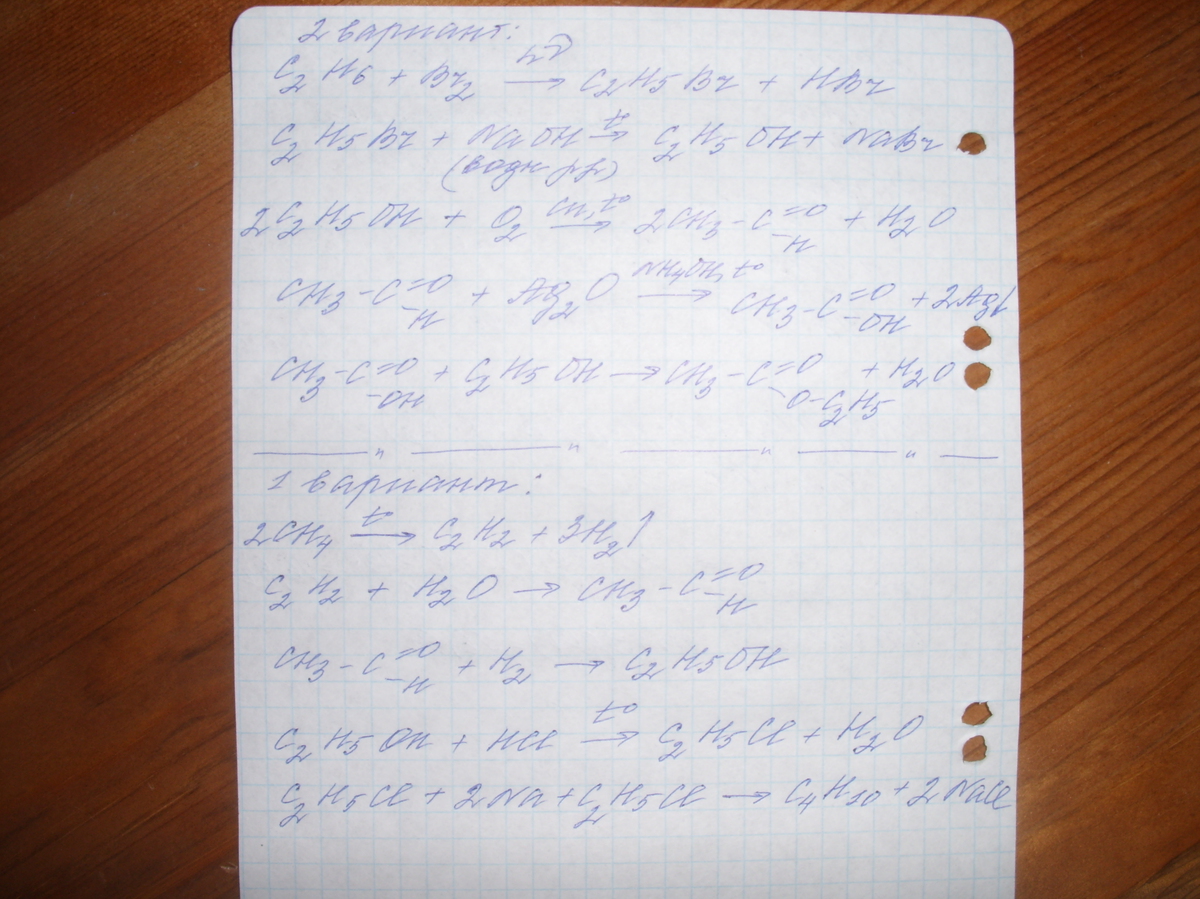 2 вариант:
C2H6 + Br2 hν→ C2H5Br + HBr
C2H5Br + NaOH t°→ C2H5OH + NaBr
(водн р-р)
2C2H5OH + O2 Cu, t°→ 2CH3-C=O-H + H2O
CH3-C=O-H + Ag2O NH4OH, t°→ CH3-C=O-OH + 2Ag↓
CH3-C=O-OH + C2H5OH → CH3-C=O-O-C2H5 + H2O
1 вариант:
2CH4 t°→ C2H2 + 3H2↑
C2H2 + H2O → CH3-C=O-H
CH3-C=O-H + H2 → C2H5OH
C2H5OH + HCl t°→ C2H5Cl + H2O
C2H5Cl + 2Na + C2H5Cl → C4H10 + 2NaCl